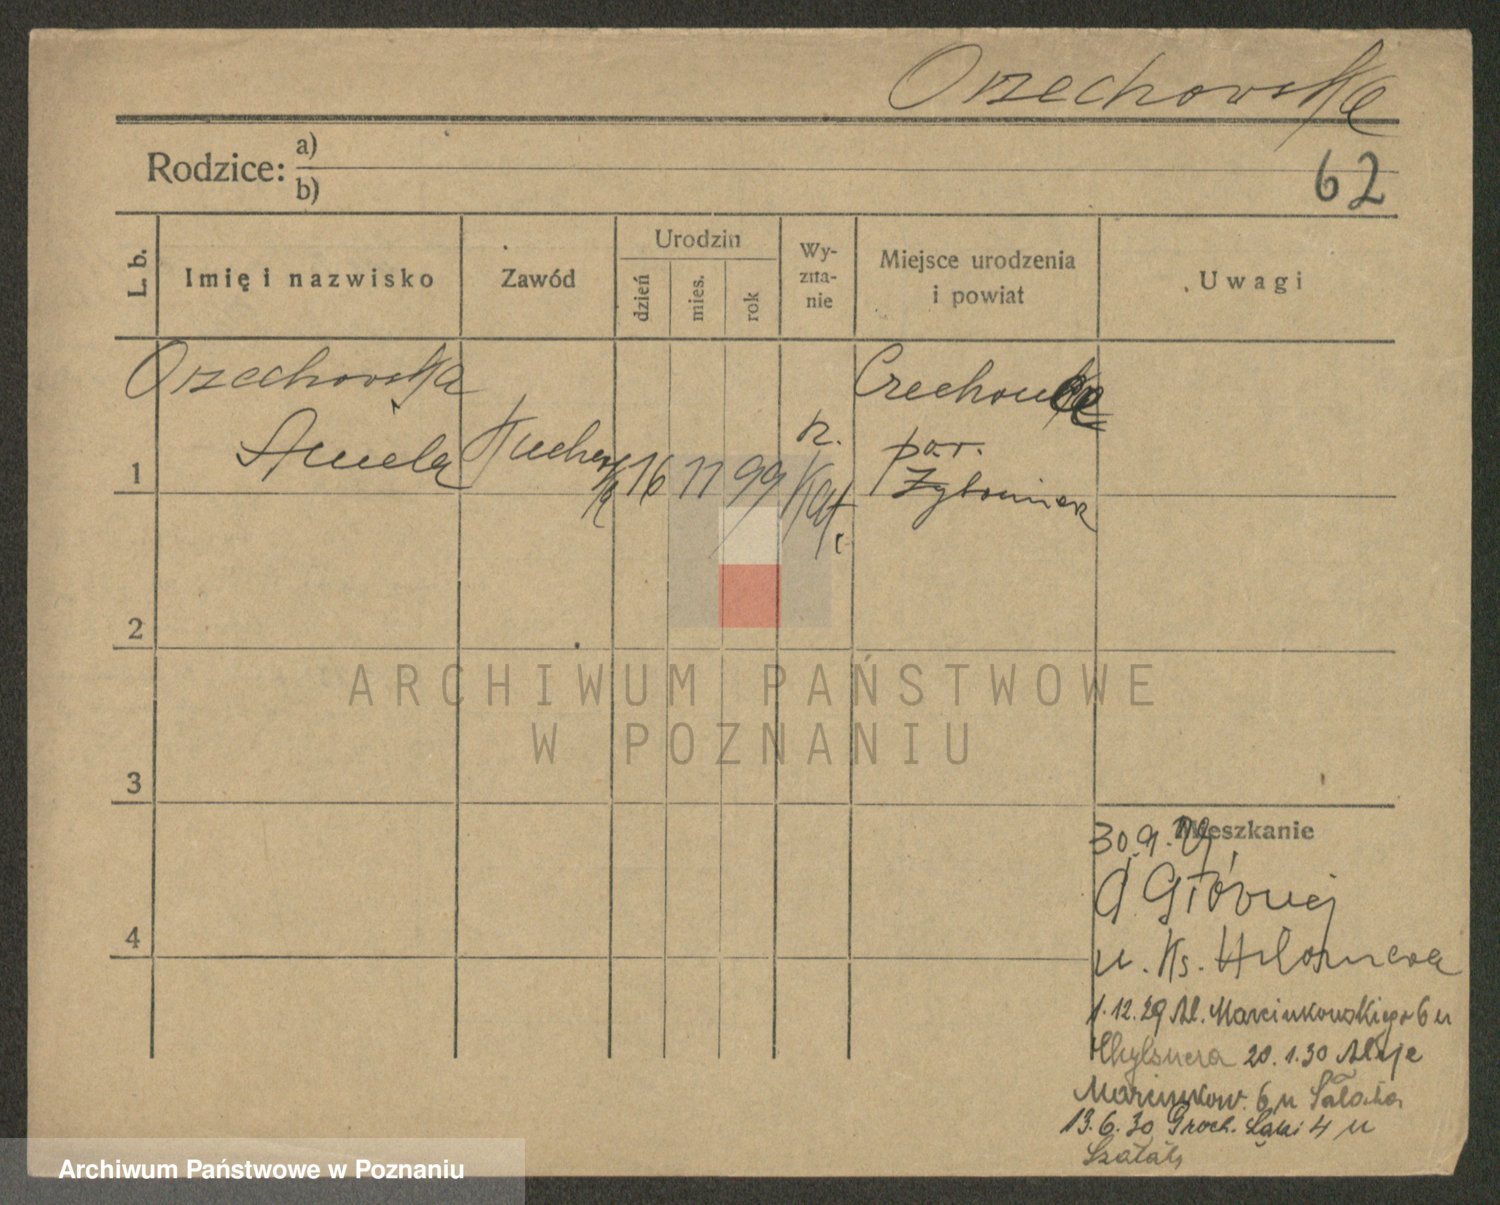 Orzechowska
62
Rodzice: a)
b)
L. b.
Imię i nazwisko
Zawód
Urodzin
dzień
mies.
rok
Wy-
zna-
nie
Miejsce urodzenia
i powiat
Uwagi
Orzechowska
Aniela
Kucharka
1
16
11
99
rz.
Kat.
par.
2
ARCHIWUM PAŃSTWOWE
W POZNANIU
3
Mieszkanie
30.9.
Głównej
u. Ks.
4
1.12.29 Al. Marcinkowskiego 6 u
20.1.30 Aleje
Marcinkow. 6 u
13.6.30 Groch. Łąki 4 u
Archiwum Państwowe w Poznaniu